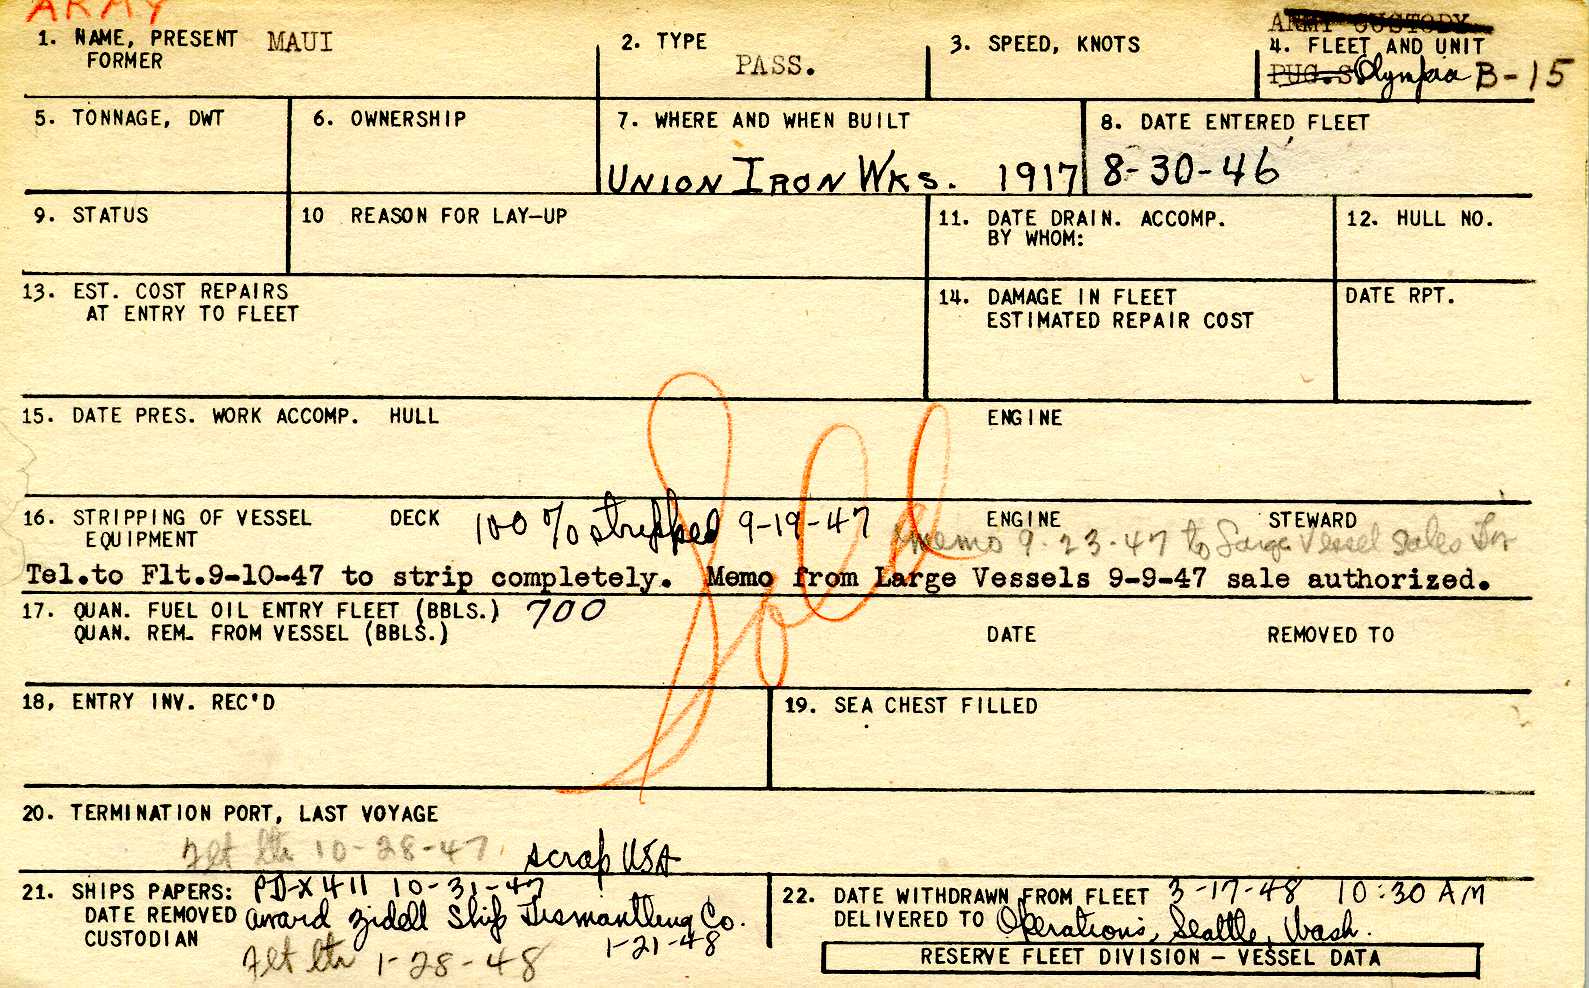 ARMY
ARMY CUSTODY
1. NAME, PRESENT MAUI
FORMER
2. TYPE
PASS.
3. SPEED, KNOTS
4. FLEET AND UNIT
PUG.S Olympia B-15
5. TONNAGE, DWT
6. OWNERSHIP
7. WHERE AND WHEN BUILT
UNION IRON WKS. 1917
8. DATE ENTERED FLEET
8-30-46
9. STATUS
10 REASON FOR LAY-UP
11. DATE DRAIN. ACCOMP.
BY WHOM:
12. HULL NO.
13. EST. COST REPAIRS
AT ENTRY TO FLEET
14. DAMAGE IN FLEET
ESTIMATED REPAIR COST
DATE RPT.
15. DATE PRES. WORK ACCOMP. HULL
ENGINE
Sold
16. STRIPPING OF VESSEL DECK 100% stripped 9-19-47 ENGINE STEWARD
EQUIPMENT memo 9-23-47 to Large Vessel Sales
Tel.to Flt.9-10-47 to strip completely. Memo from Large Vessels 9-9-47 sale authorized.
17. QUAN. FUEL OIL ENTRY FLEET (BBLS.) 700
QUAN. REM. FROM VESSEL (BBLS.) DATE REMOVED TO
18. ENTRY INV. REC'D
19. SEA CHEST FILLED
20. TERMINATION PORT, LAST VOYAGE
Flt ltr 10-28-47 scrap USA
21. SHIPS PAPERS: PD-X411 10-31-47
DATE REMOVED award Zidell Ship Dismantling Co.
CUSTODIAN 1-21-48
Flt ltr 1-28-48
22. DATE WITHDRAWN FROM FLEET 3-17-48 10:30 AM
DELIVERED TO Operations, Seattle, Wash.
RESERVE FLEET DIVISION – VESSEL DATA